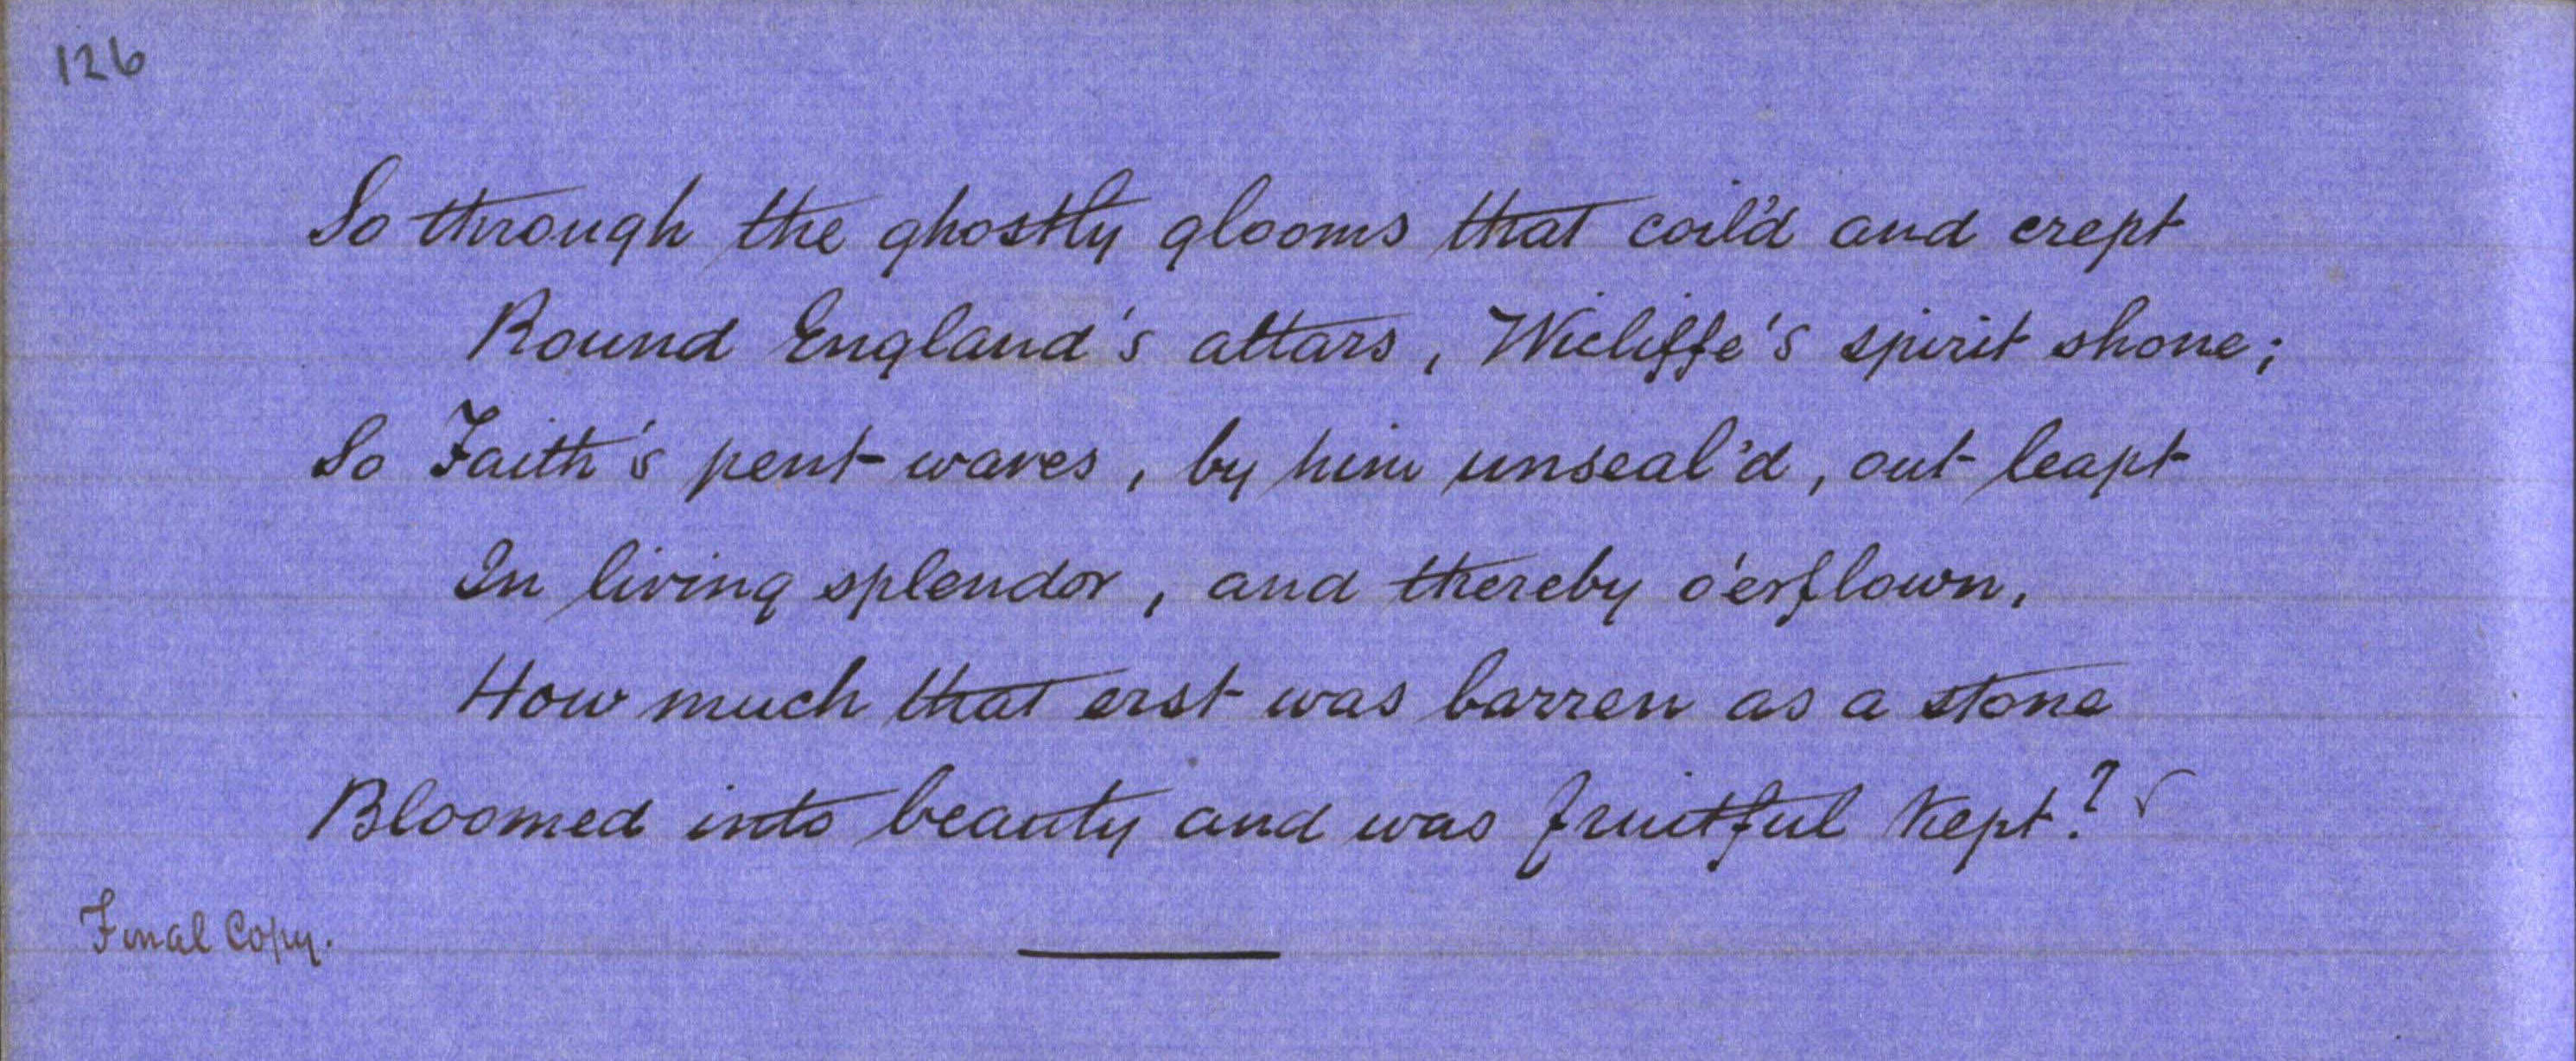 126
So through the ghostly glooms that coil'd and crept
Round England's altars, Wicliffe's spirit shone;
So Faith's pent waves, by him unseal'd, out leapt
In living splendor, and thereby o'erflown,
How much that erst was barren as a stone
Bloomed into beauty and was fruitful kept?
Final Copy.